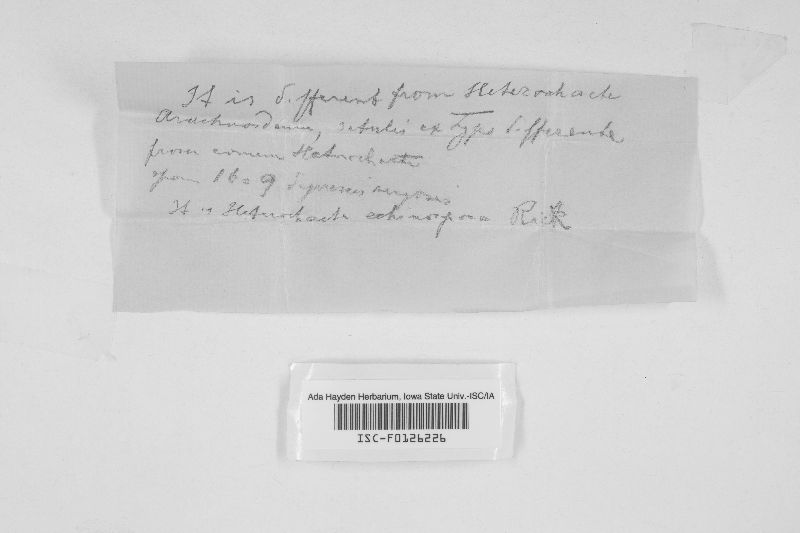 It is different from Heterochaete
Arachnoidea, setulis ex Typo differente
from Heterochaete
16 = 9
It is Heterochaete echinospora Rick
Ada Hayden Herbarium, Iowa State Univ.-ISC/IA
ISC-F0126226